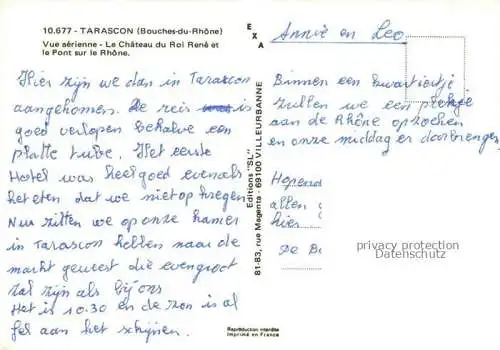 10.677 - TARASCON (Bouches-du-Rhône)
Vue aérienne - Le Château du Roi René et
le Pont sur le Rhône.
Hier zijn we dan in Tarascon
aangekomen. De reis is
goed verlopen behalve een
platte tube. Het eerste
Hotel was heel goed evenals
het eten dat we niet op kregen
Nu zitten we op onze kamer
in Tarascon hebben naar de
markt geweest die even groot
zal zijn als bij ons
Het is 10.30 en de zon is al
fel aan het schijnen.
EXA
Editions "SL"
81-83, rue Magenta - 69100 VILLEURBANNE
Reproduction interdite
Imprimé en France
Annie en Leo
Binnen een kwartiertje
zullen we een plekje
aan de Rhône opzoeken
en onze middag er doorbrengen
Hopend
allen
hier
De Bo
privacy protection
Datenschutz